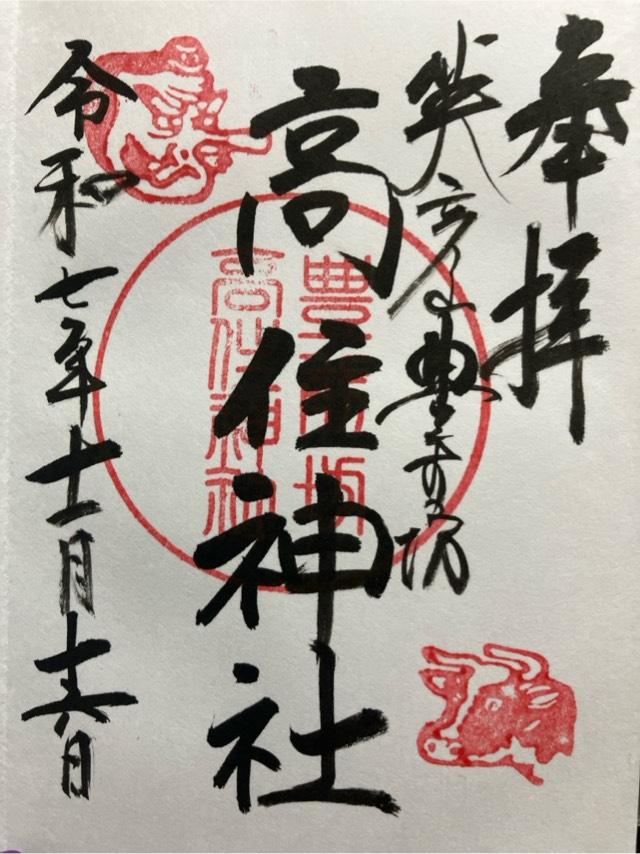 奉拝
英彦山豊前坊
高住神社
令和七年十一月十六日
豊前坊
高住神社